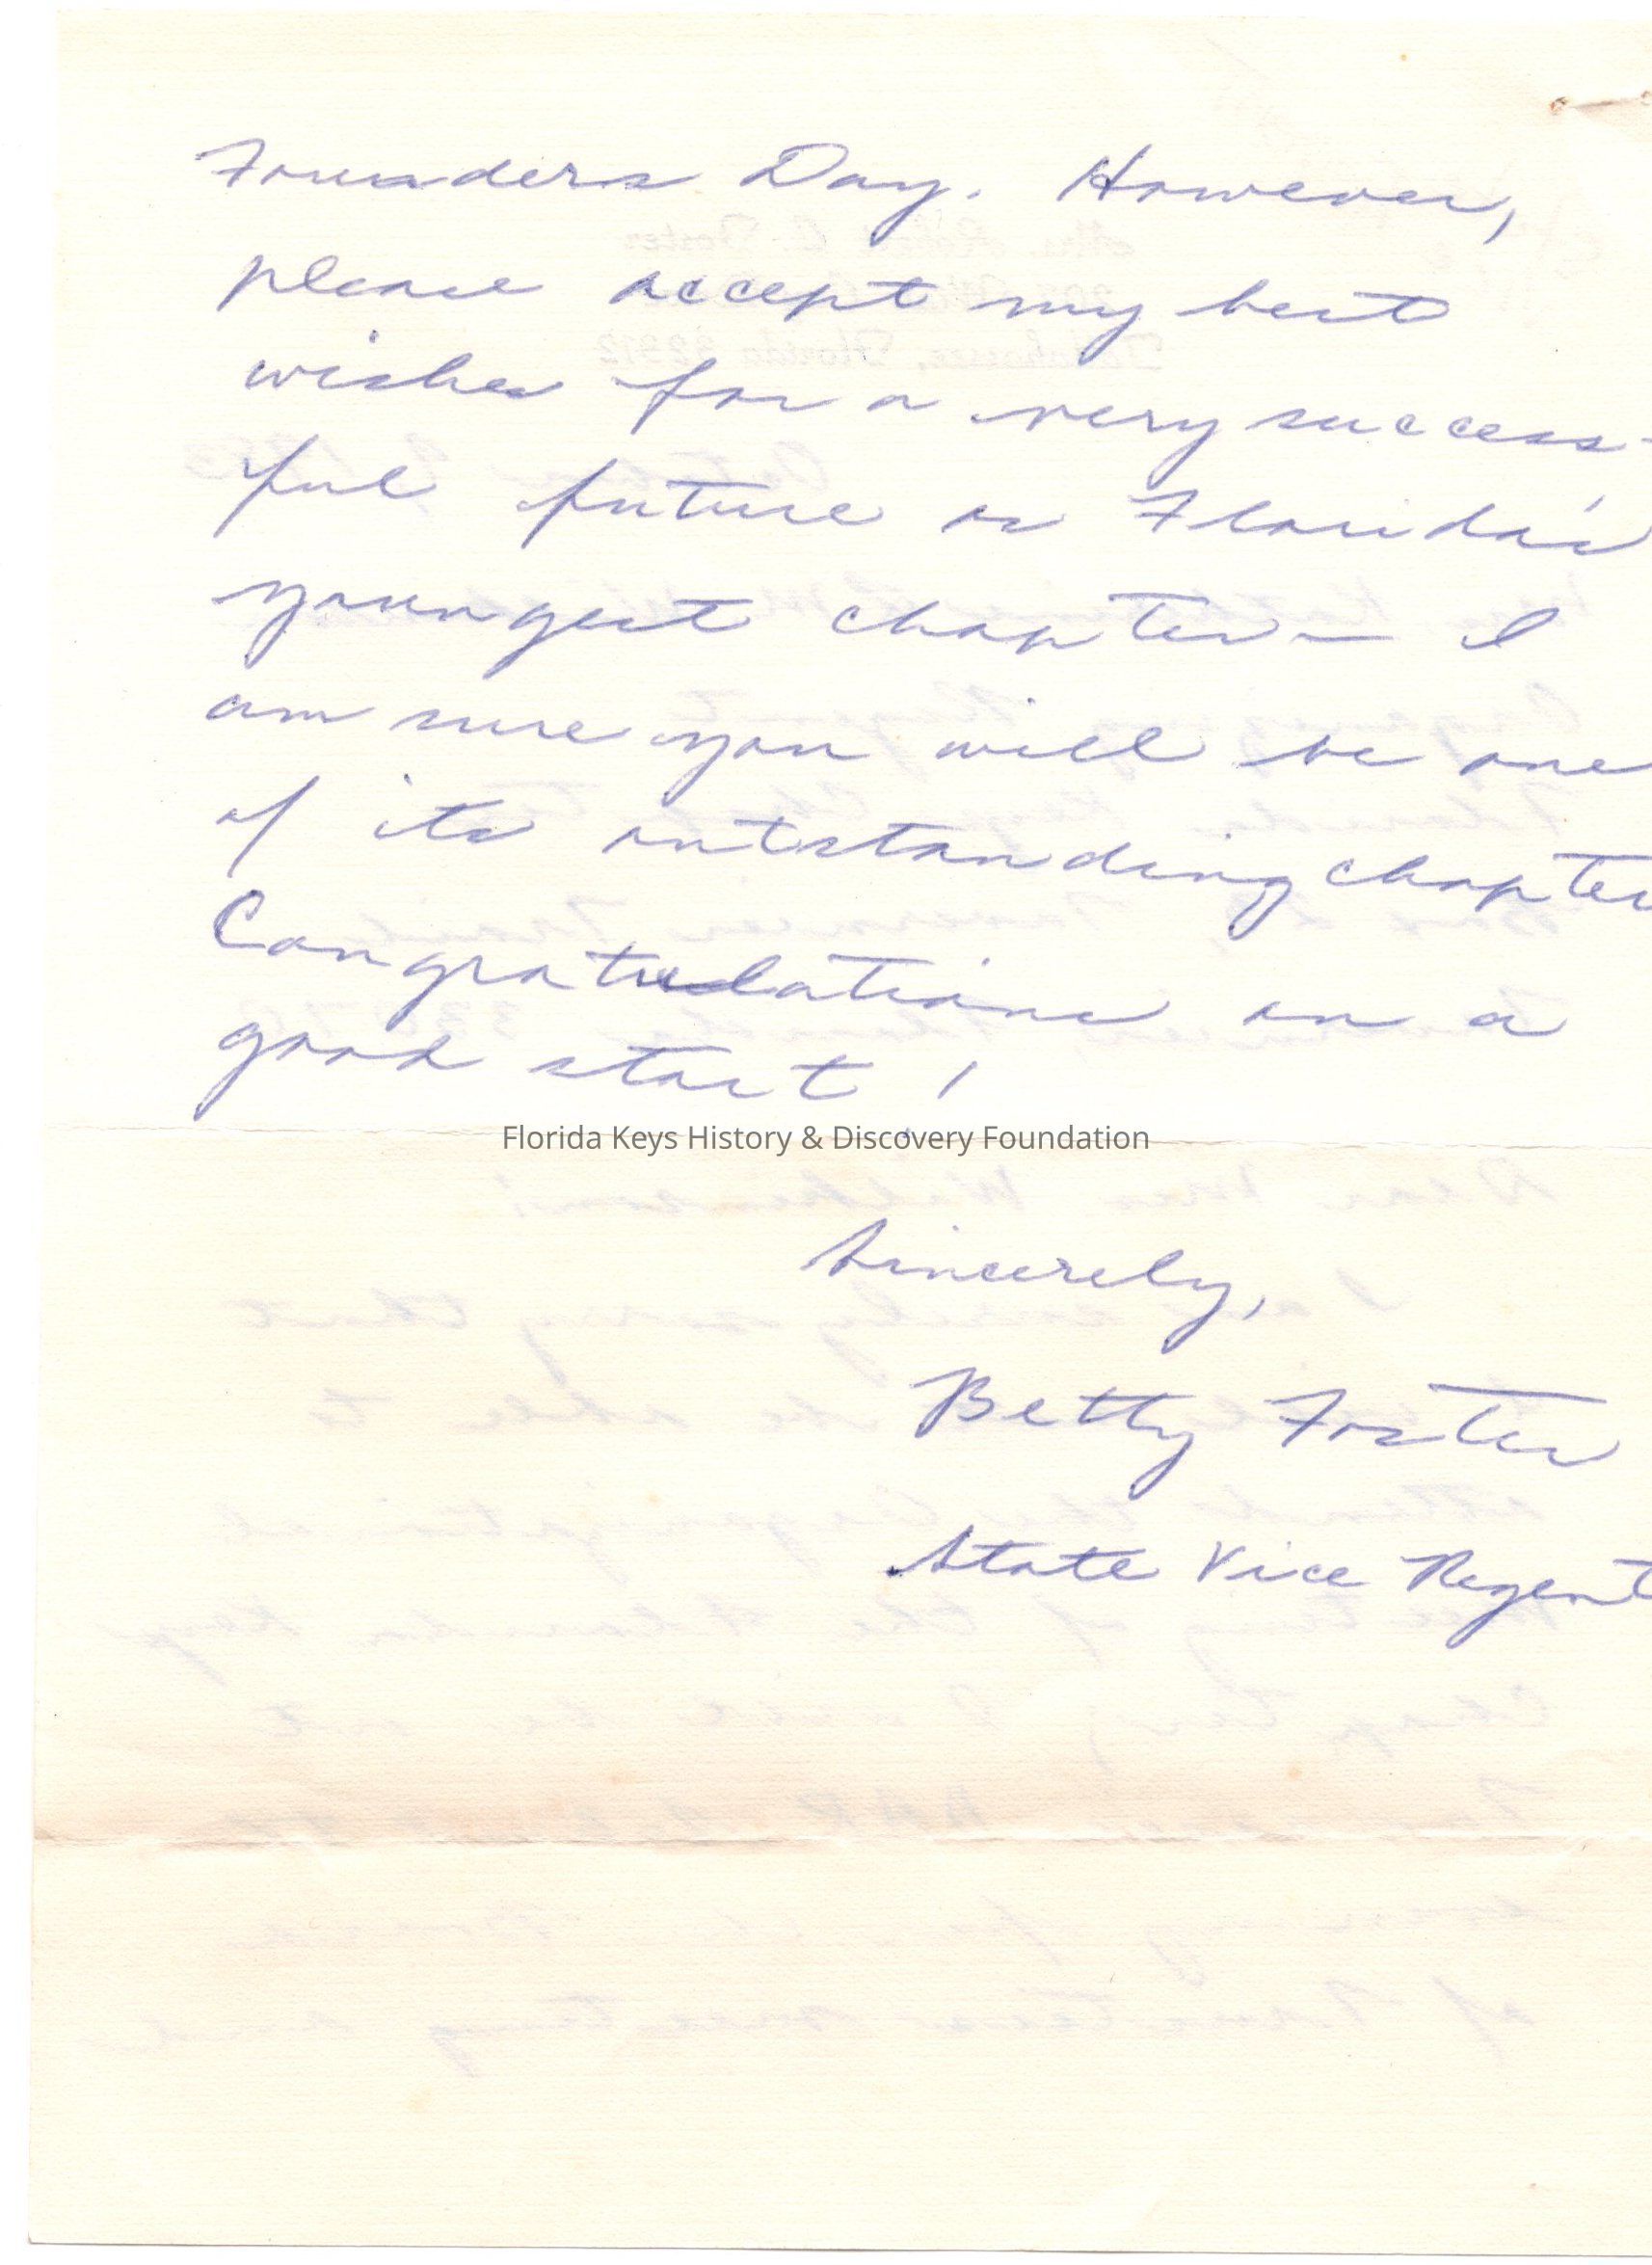 Founders Day. However,
please accept my best
wishes for a very success-
ful future as Florida's
youngest chapter — I
am sure you will be one
of its outstanding chapter
Congratulations on a
good start!
Florida Keys History & Discovery Foundation
Sincerely,
Betty Foster
State Vice Regent